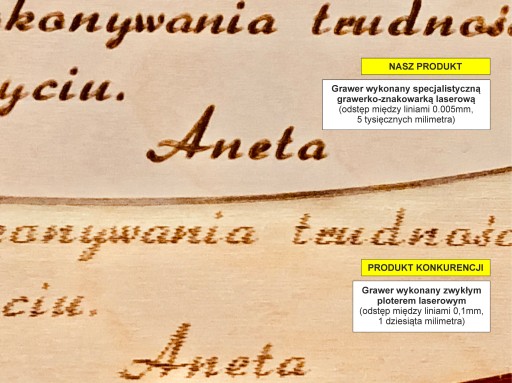 konywania trudnoś
NASZ PRODUKT
Grawer wykonany specjalistyczną
grawerko-znakowarką laserową
(odstęp między liniami 0.005mm,
5 tysięcznych milimetra)
yciu.
Aneta
onywania trudnośc
PRODUKT KONKURENCJI
Grawer wykonany zwykłym
ploterem laserowym
(odstęp między liniami 0,1mm,
1 dziesiąta milimetra)
ciu.
Aneta